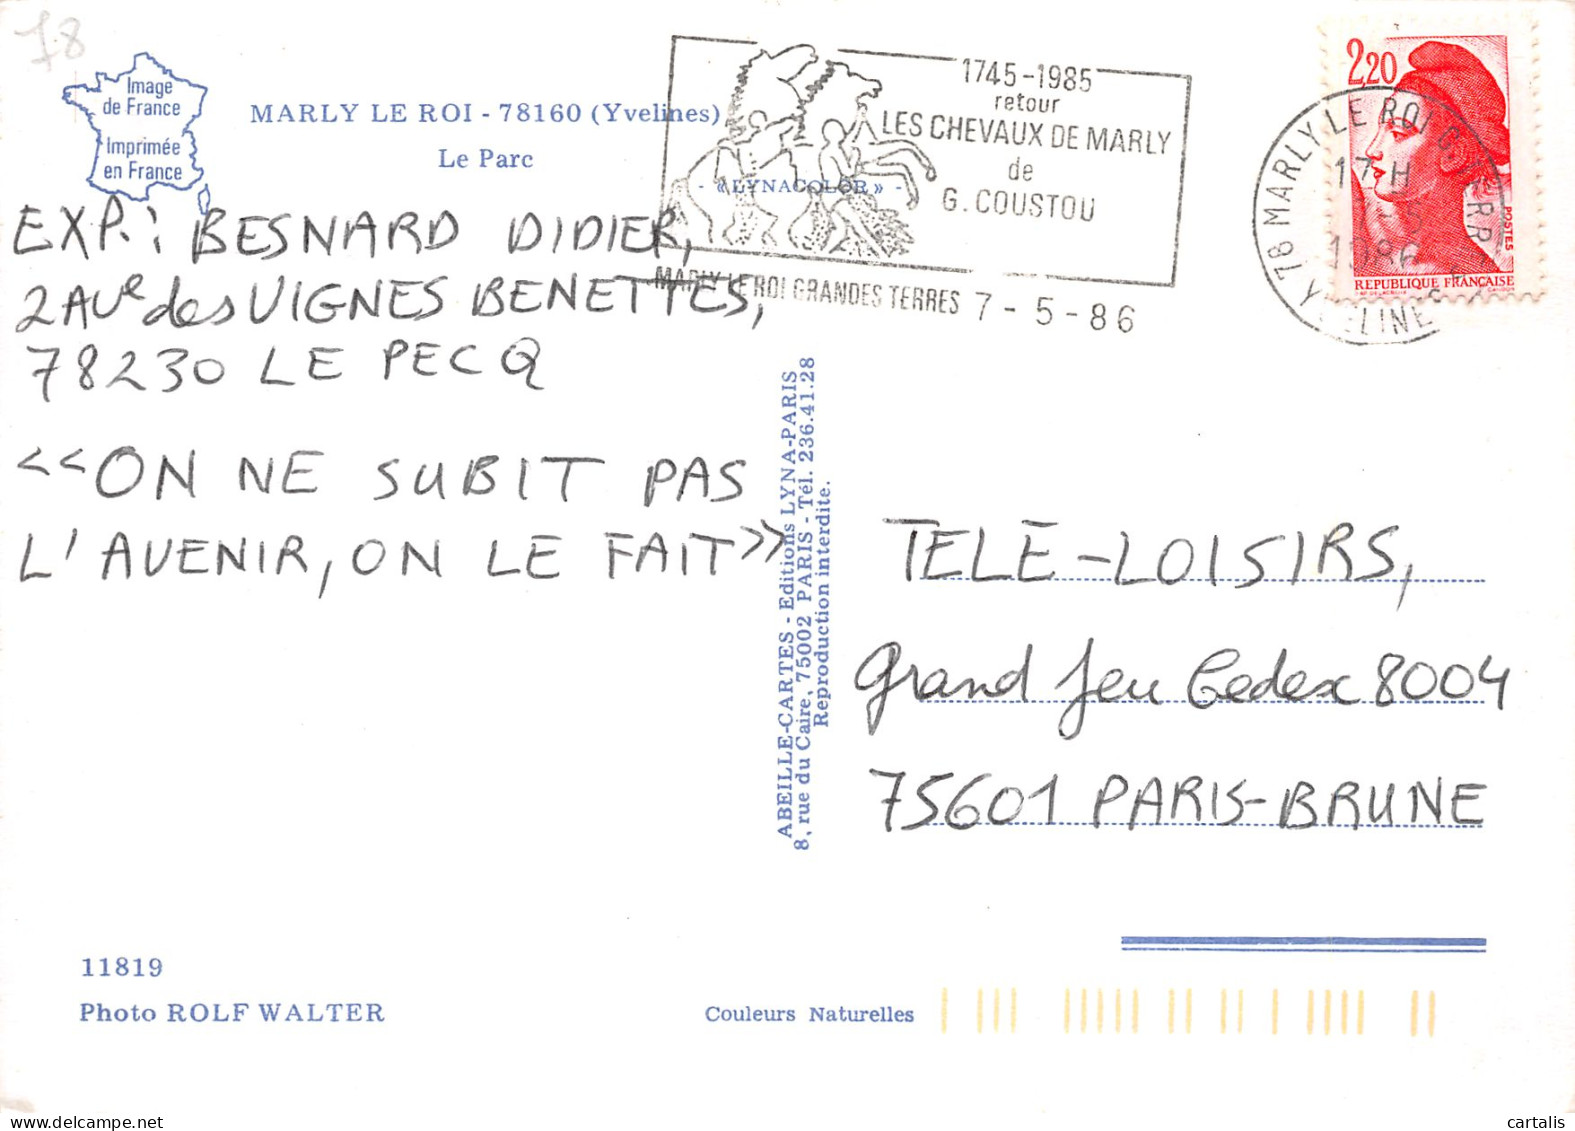 78
Image
de France
Imprimée
en France
MARLY LE ROI - 78160 (Yvelines)
Le Parc
- « LYNACOLOR » -
1745-1985
retour
LES CHEVAUX DE MARLY
de
G. COUSTOU
MARLY LE ROI GRANDES TERRES 7 - 5 - 86
2,20
POSTES
REPUBLIQUE FRANÇAISE
78 MARLY LE ROI
17 H
1986
EXP.: BESNARD DIDIER,
2 AVe des VIGNES BENETTES,
78230 LE PECQ
<<ON NE SUBIT PAS
L'AVENIR, ON LE FAIT>>
ABEILLE-CARTES - Editions LYNA-PARIS
8, rue du Caire, 75002 PARIS - Tél. 236.41.28
Reproduction interdite.
TELE-LOISIRS,
Grand Jeu Cedex 8004
75601 PARIS-BRUNE
11819
Photo ROLF WALTER
Couleurs Naturelles
cartalis
www.delcampe.net